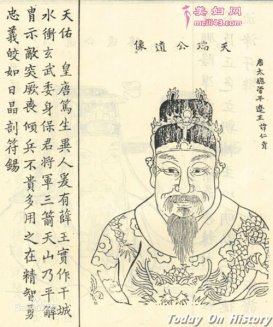 美妇网
天瑞公遺像
唐太總管平遼王諱仁貴
天佑 皇唐篤生異人爰有薛王實作干城
水衝玄武委身保君將軍三箭天山乃平解
胄示敵突厥喪傾兵不貴多用之在精智勇
忠義皎如日晶剖符錫
Today On History